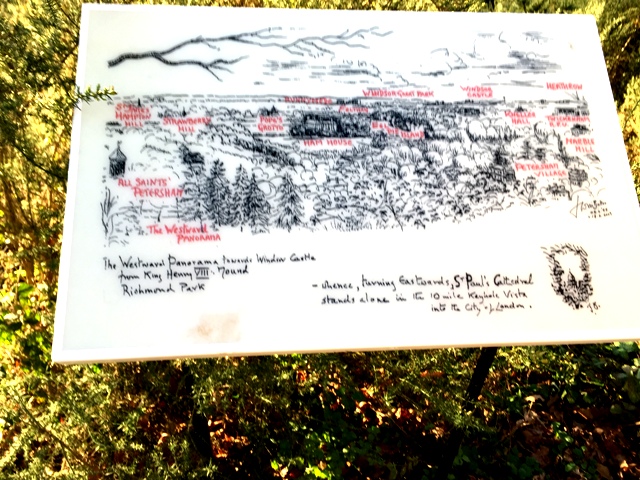 WINDSOR GREAT PARK
WINDSOR CASTLE
HEATHROW
RUNNYMEDE
HAMPTON
HILL
STRAWBERRY
HILL
POPE'S
GROTTO
HAM HOUSE
KNELLER
HALL
TWICKENHAM
R.F.U
MARBLE
HILL
PETERSHAM
VILLAGE
ALL SAINTS'
PETERSHAM
The Westward
Panorama
The Westward Panorama towards Windsor Castle
from King Henry VIII's Mound
Richmond Park
- whence, turning Eastwards, St Paul's Cathedral
stands alone in the 10 mile Keyhole Vista
into the City of London.